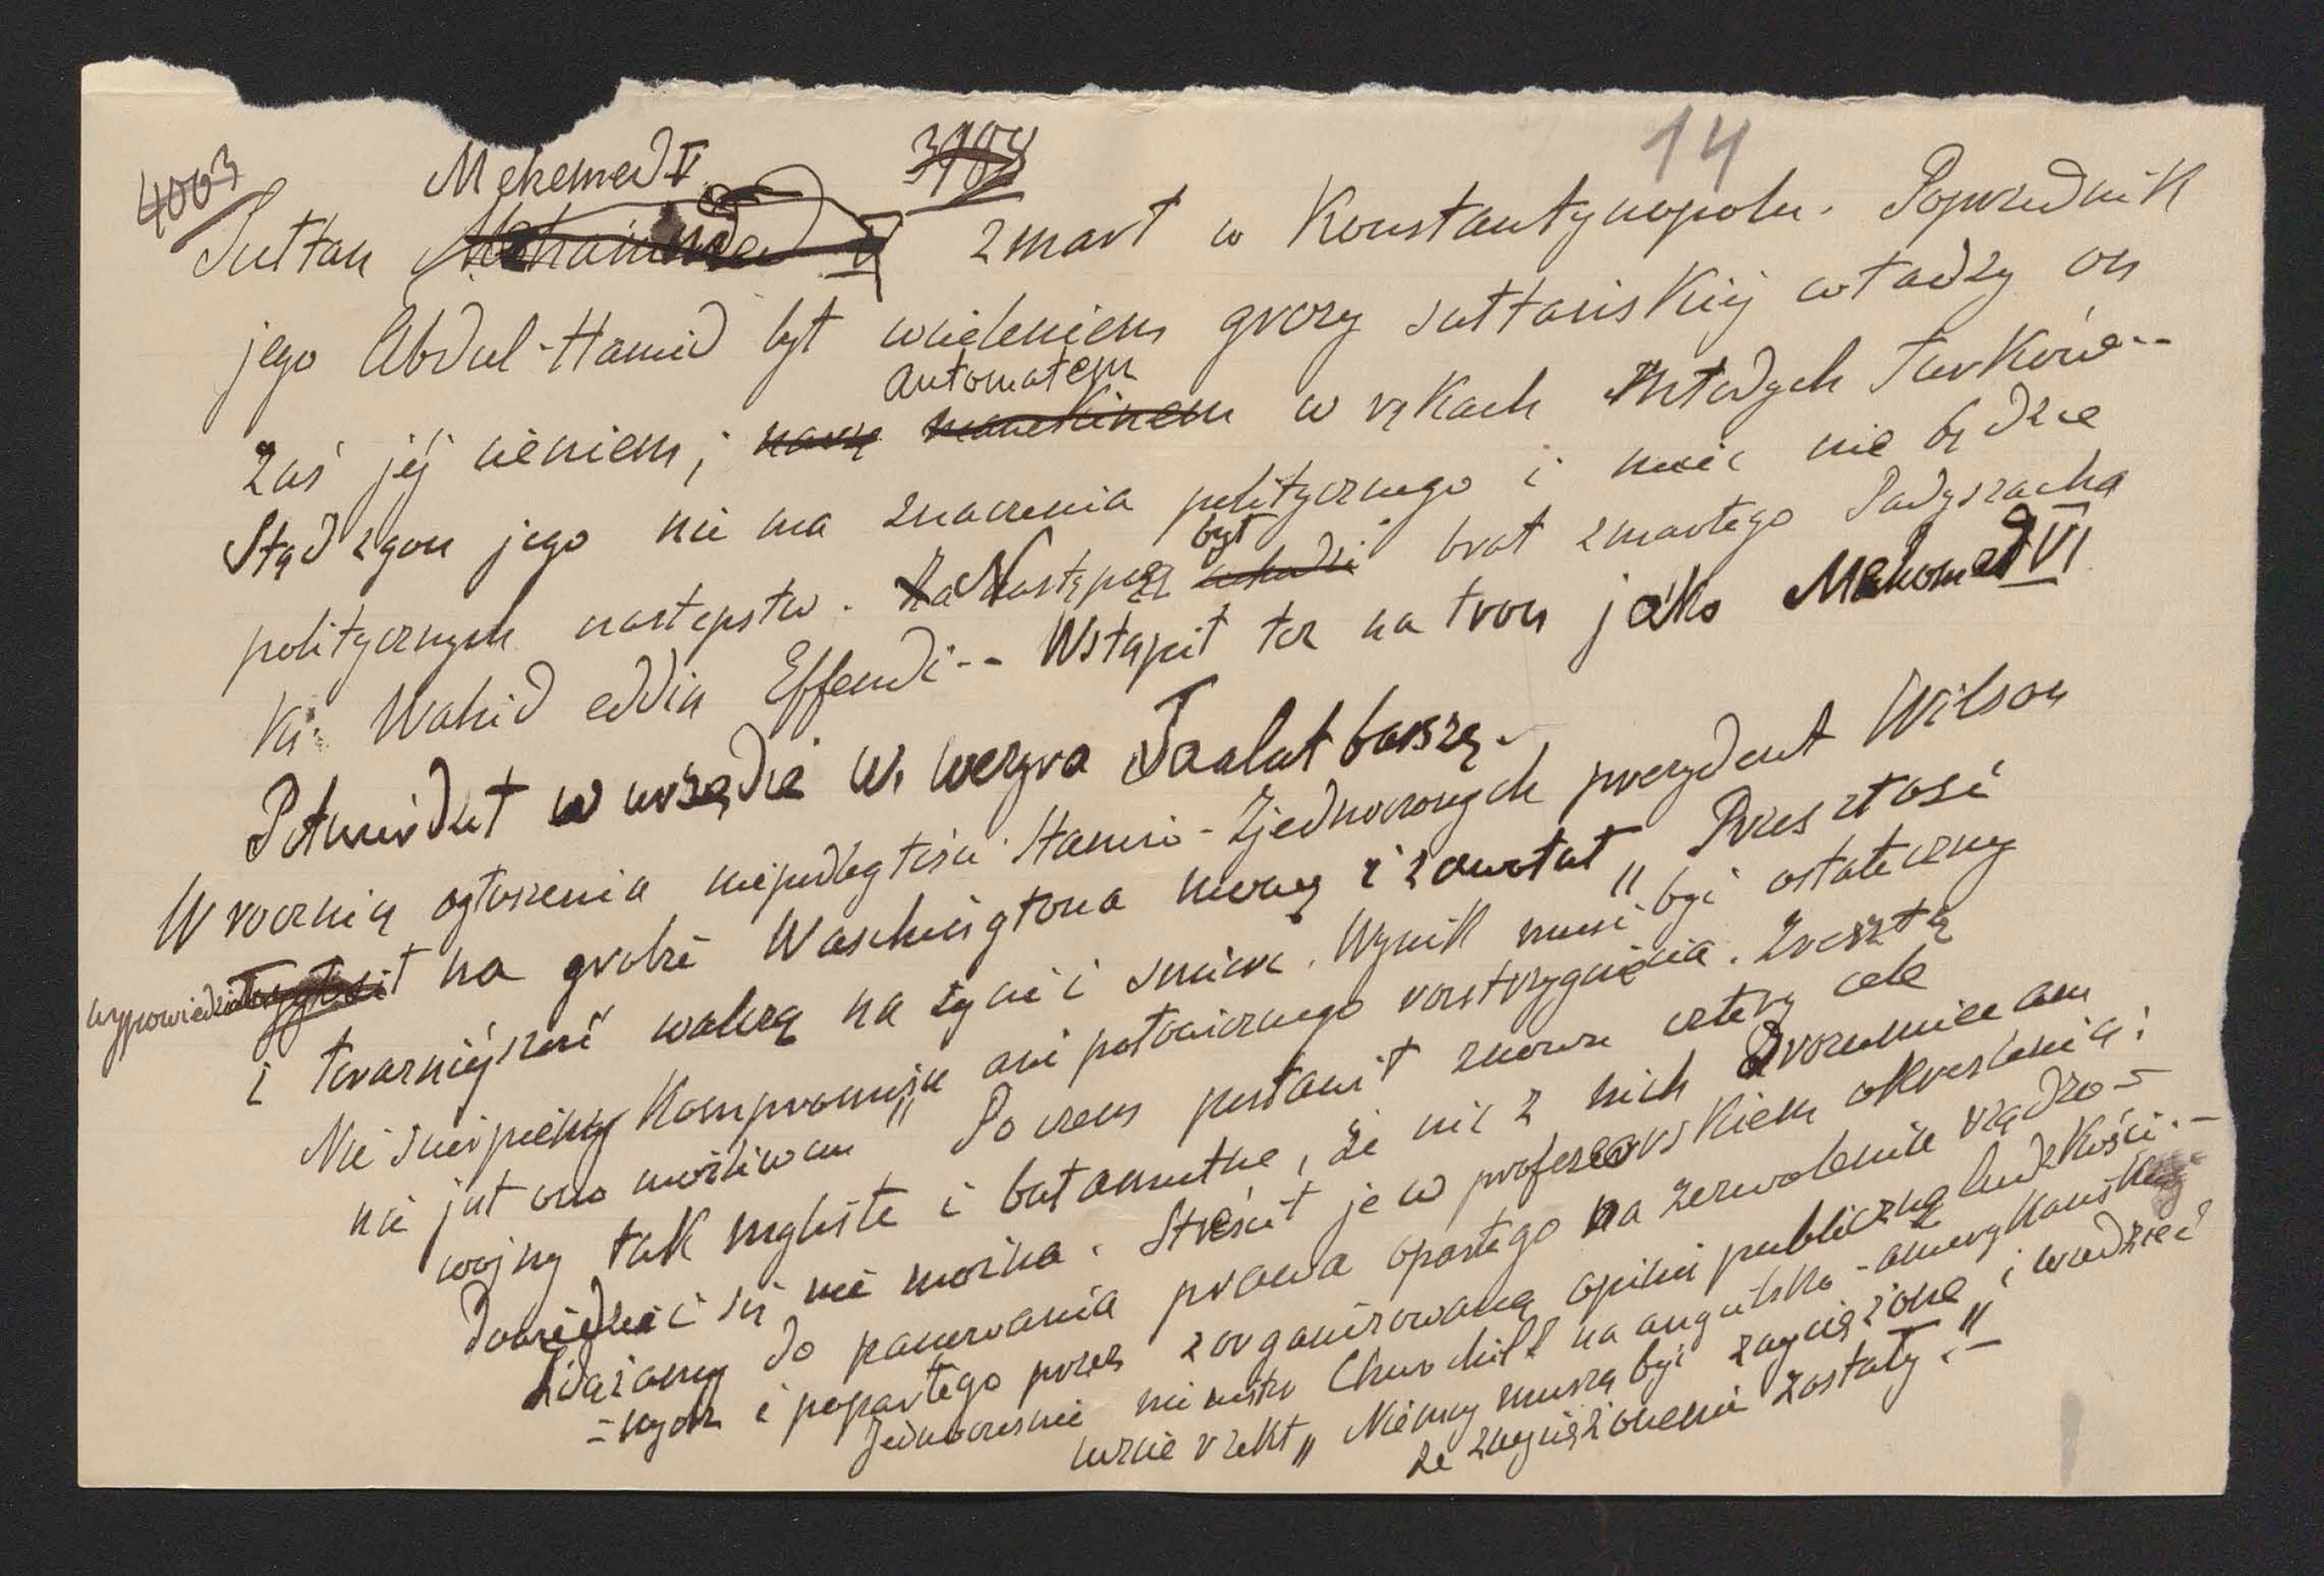 4003
14
Mehemed V
Sułtan zmarł w Konstantynopolu. Poprzednik
jego Abdul-Hamid był wcieleniem grozy sułtańskiéj władzy on
automatem
zaś jéj cieniem, manekinem w rękach Młodych Turków --
Stąd zgon jego nie ma znaczenia politycznego i mieć nie będzie
politycznych następstw. Za Następcą był brat zmarłego Padyszacha
Ks. Wahid eddin Effendi -- Wstąpił tez na tron jako Mahomed VI
Potwierdził w urzędzie W. wezyra Taalat baszę. -
W rocznicę ogłoszenia niepodległości Stanów-Zjednoczonych prezydent Wilson
wypowiedział na grobie Waschingtona mowę i zawołał „ Przeszłość
i teraźniéjszość walczą na życie i śmierć. Wynik musi być ostateczny
Nie ścierpiemy kompromisu ani połowicznego rozstrzygnięcia. Zresztą
nie jest ono możliwem" Poczem postawił znowu cztery cele
wojny tak mgliste i bałamutne, że nic z nich wrozumieć ani
dowiedzieć się nie można. Streścił je w profesorskiem określeniu:
Dążamy do panowania prawa opartego na zezwolenie rządzo-
-nych i popartego przez zorganizowaną opinię publiczną ludzkości. -
Jednocześnie minister Churchill na angielsko-amerykańskiéj
uczcie rzekł „ Niemcy muszą być zwyciężone i wiedzieć
że zwyciężonemi zostały." -